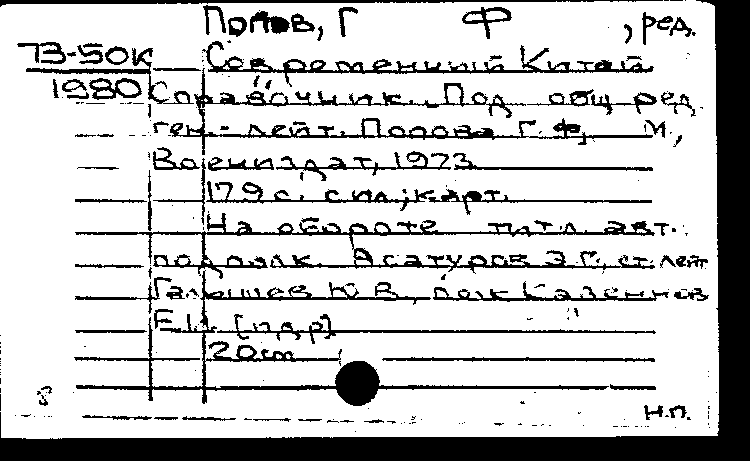 Попов, Г Ф, ред.
73-50К Современный Китай.
1980 Справочник. Под общ ред
ген.- лейт. Попова Г. Ф, М.,
Воениздат, 1973
179 с. с ил.; карт.
На обороте титл. авт.
подполк. Асатуров Э. Г., ст. лейт
Галышев Ю. В., полк Казеннов
Е.И. [и др]
20 cm
8
Н.П.